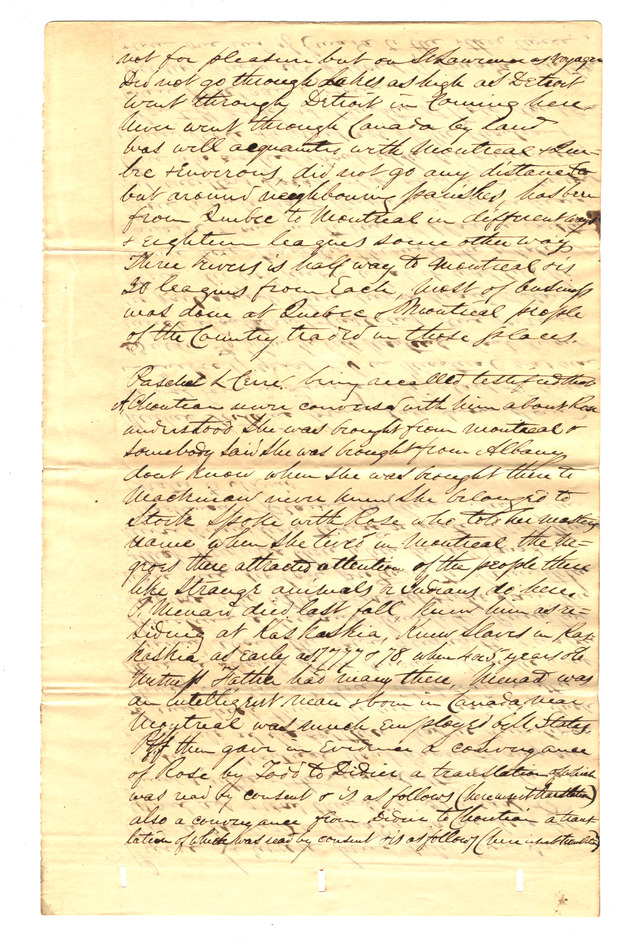 not for pleasure but on St Lawrence as voyager
Did not go through Lakes as high as Detroit
went through Detroit in coming here
Never went through Canada by land
was well acquainted with Montreal & Que-
bec & environs, did not go any distance
but around neighbouring parishes, has been
from Quebec to Montreal in different ways
& Eighteen leagues some other way
Three Rivers is half way to Montreal viz
30 leagues from Each, most of business
was done at Quebec & Montreal people
of the Country traded in those places.
Paschal L Cerre being recalled testified that
A Chouteau never conversed with him about Rose
understood she was brought from Montreal &
somebody said she was brought from Albany
dont know when she was brought there to
Mackinaw never knew she belonged to
Stork Spoke with Rose who told her masters
name when she lived in Montreal the Ne-
groes there attracted attention of the people there
like strange animals & Indians do here.
P. Menard died last fall, knew him as re-
siding at Kaskaskia, knew slaves in Kas-
kaskia as early as 1777 & 78, when 4 or 5 years old
Witness Father had many there, Menard was
an intelligent man & born in Canada near
Montreal was much employed by U. States
Pff then gave in Evidence a conveyance
of Rose by Todd to Didier a translation of which
was read by consent & is as follows (here insert translation)
also a conveyance from Didier to Chouteau a trans
lation of which was read by consent & is as follows (here insert translation)